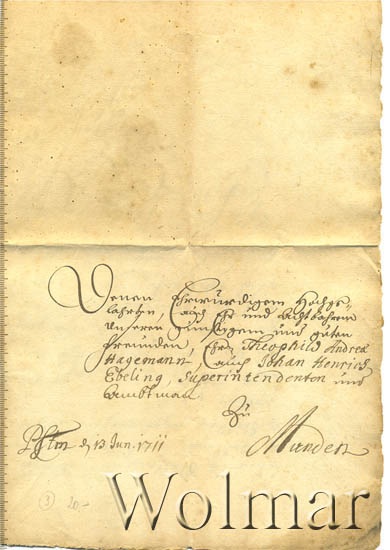 Denen Ehrwürdigem Hochge-
lahrten, auch Ehr und Achtbahrem
Unseren günstigem und guten
freunden, Ehrn Theophilo Andreæ
Hagemann, auch Johan Henrich
Ebeling, Superintendenten und
Ambtman
Zu
Münden
d 13 Jun. 1711
3 20.-
Wolmar